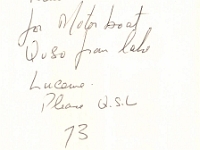 for Motor boat
QUSO from lake
Lucerne.
Please Q.S.L
73